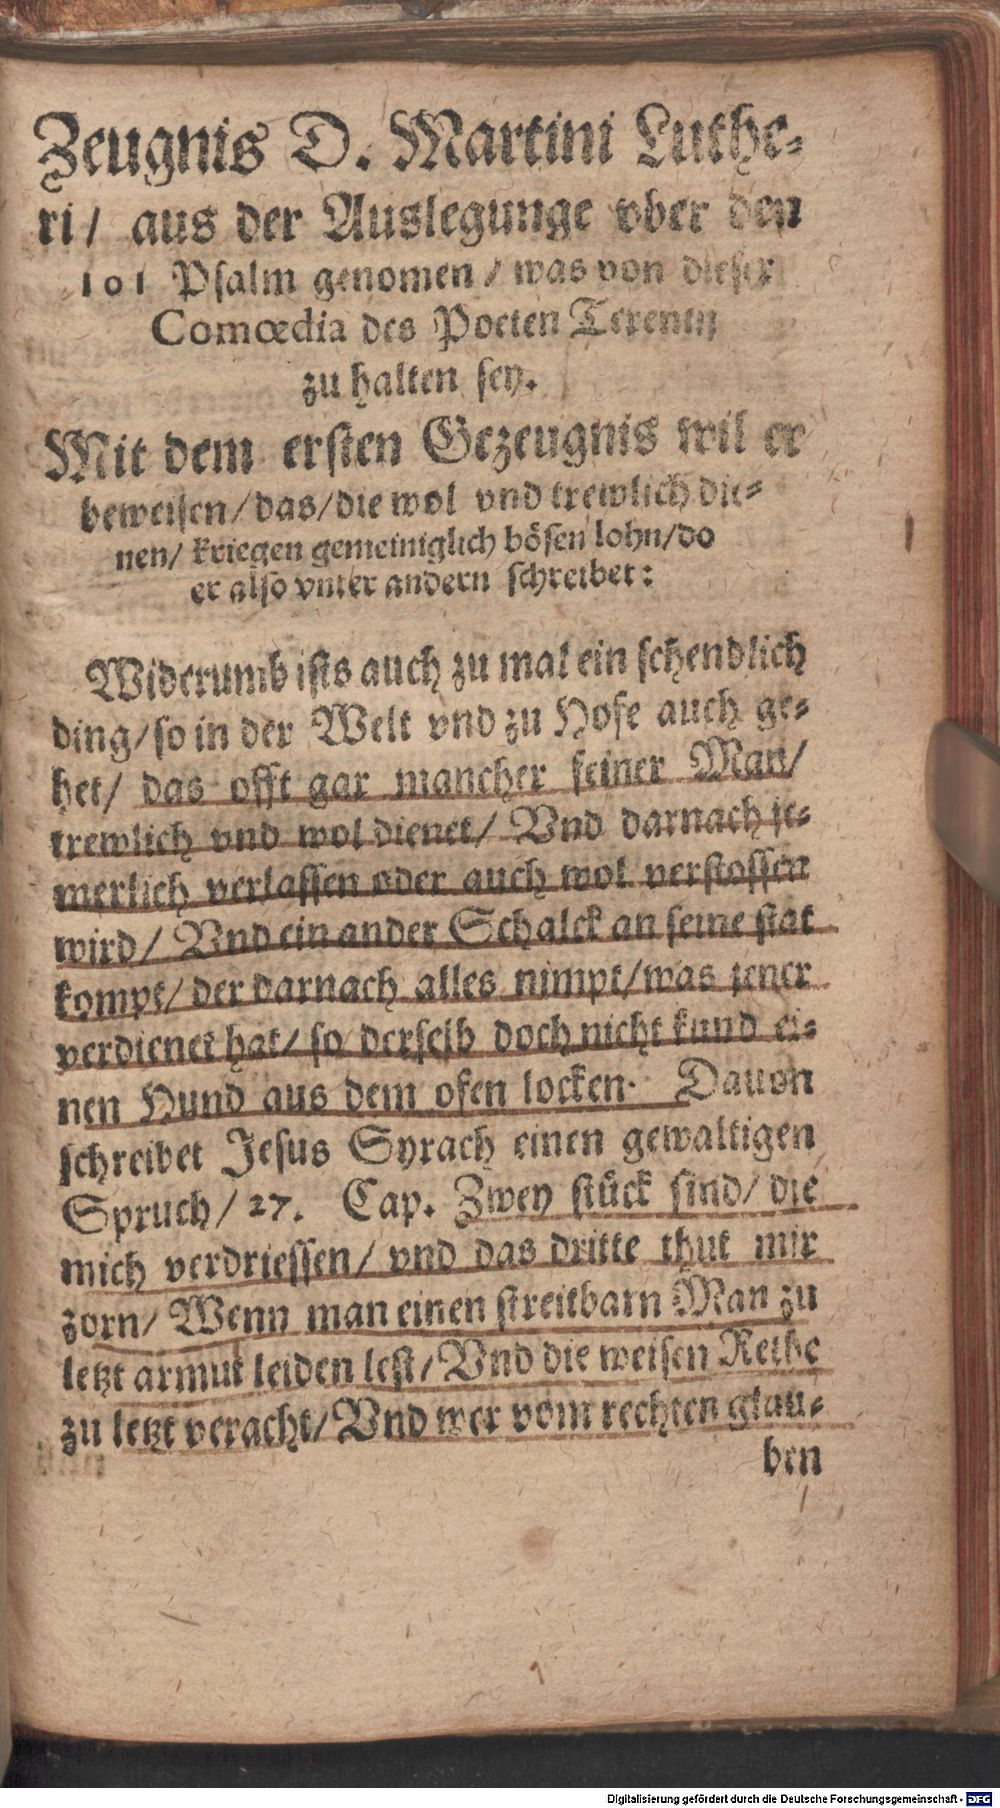 Zeugnis D. Martini Luthe-
ri/ aus der Auslegunge vber den
101 Psalm genomen/ was von dieser
Comœdia des Poeten Terentij
zu halten sey.
Mit dem ersten Gezeugnis wil er
beweisen/ das/ die wol vnd trewlich die-
nen/ kriegen gemeiniglich bösen lohn/ do
er also vnter andern schreibet:
Widerumb ists auch zu mal ein schendlich
ding/ so in der Welt vnd zu Hofe auch ge-
het/ das offt gar mancher seiner Man/
trewlich vnd wol dienet/ Vnd darnach je-
merlich verlassen oder auch wol verstossen
wird/ Vnd ein ander Schalck an seine stat
kompt/ der darnach alles nimpt/ was jener
verdienet hat/ so derselb doch nicht kund ei-
nen Hund aus dem ofen locken. Dauon
schreibet Jesus Syrach einen gewaltigen
Spruch/ 27. Cap. Zwey stück sind/ die
mich verdriessen/ vnd das dritte thut mir
zorn/ Wenn man einen streitbarn Man zu
letzt armut leiden lest/ Vnd die weisen Rethe
zu letzt veracht/ Vnd wer vom rechten glau-
ben
Digitalisierung gefördert durch die Deutsche Forschungsgemeinschaft - DFG